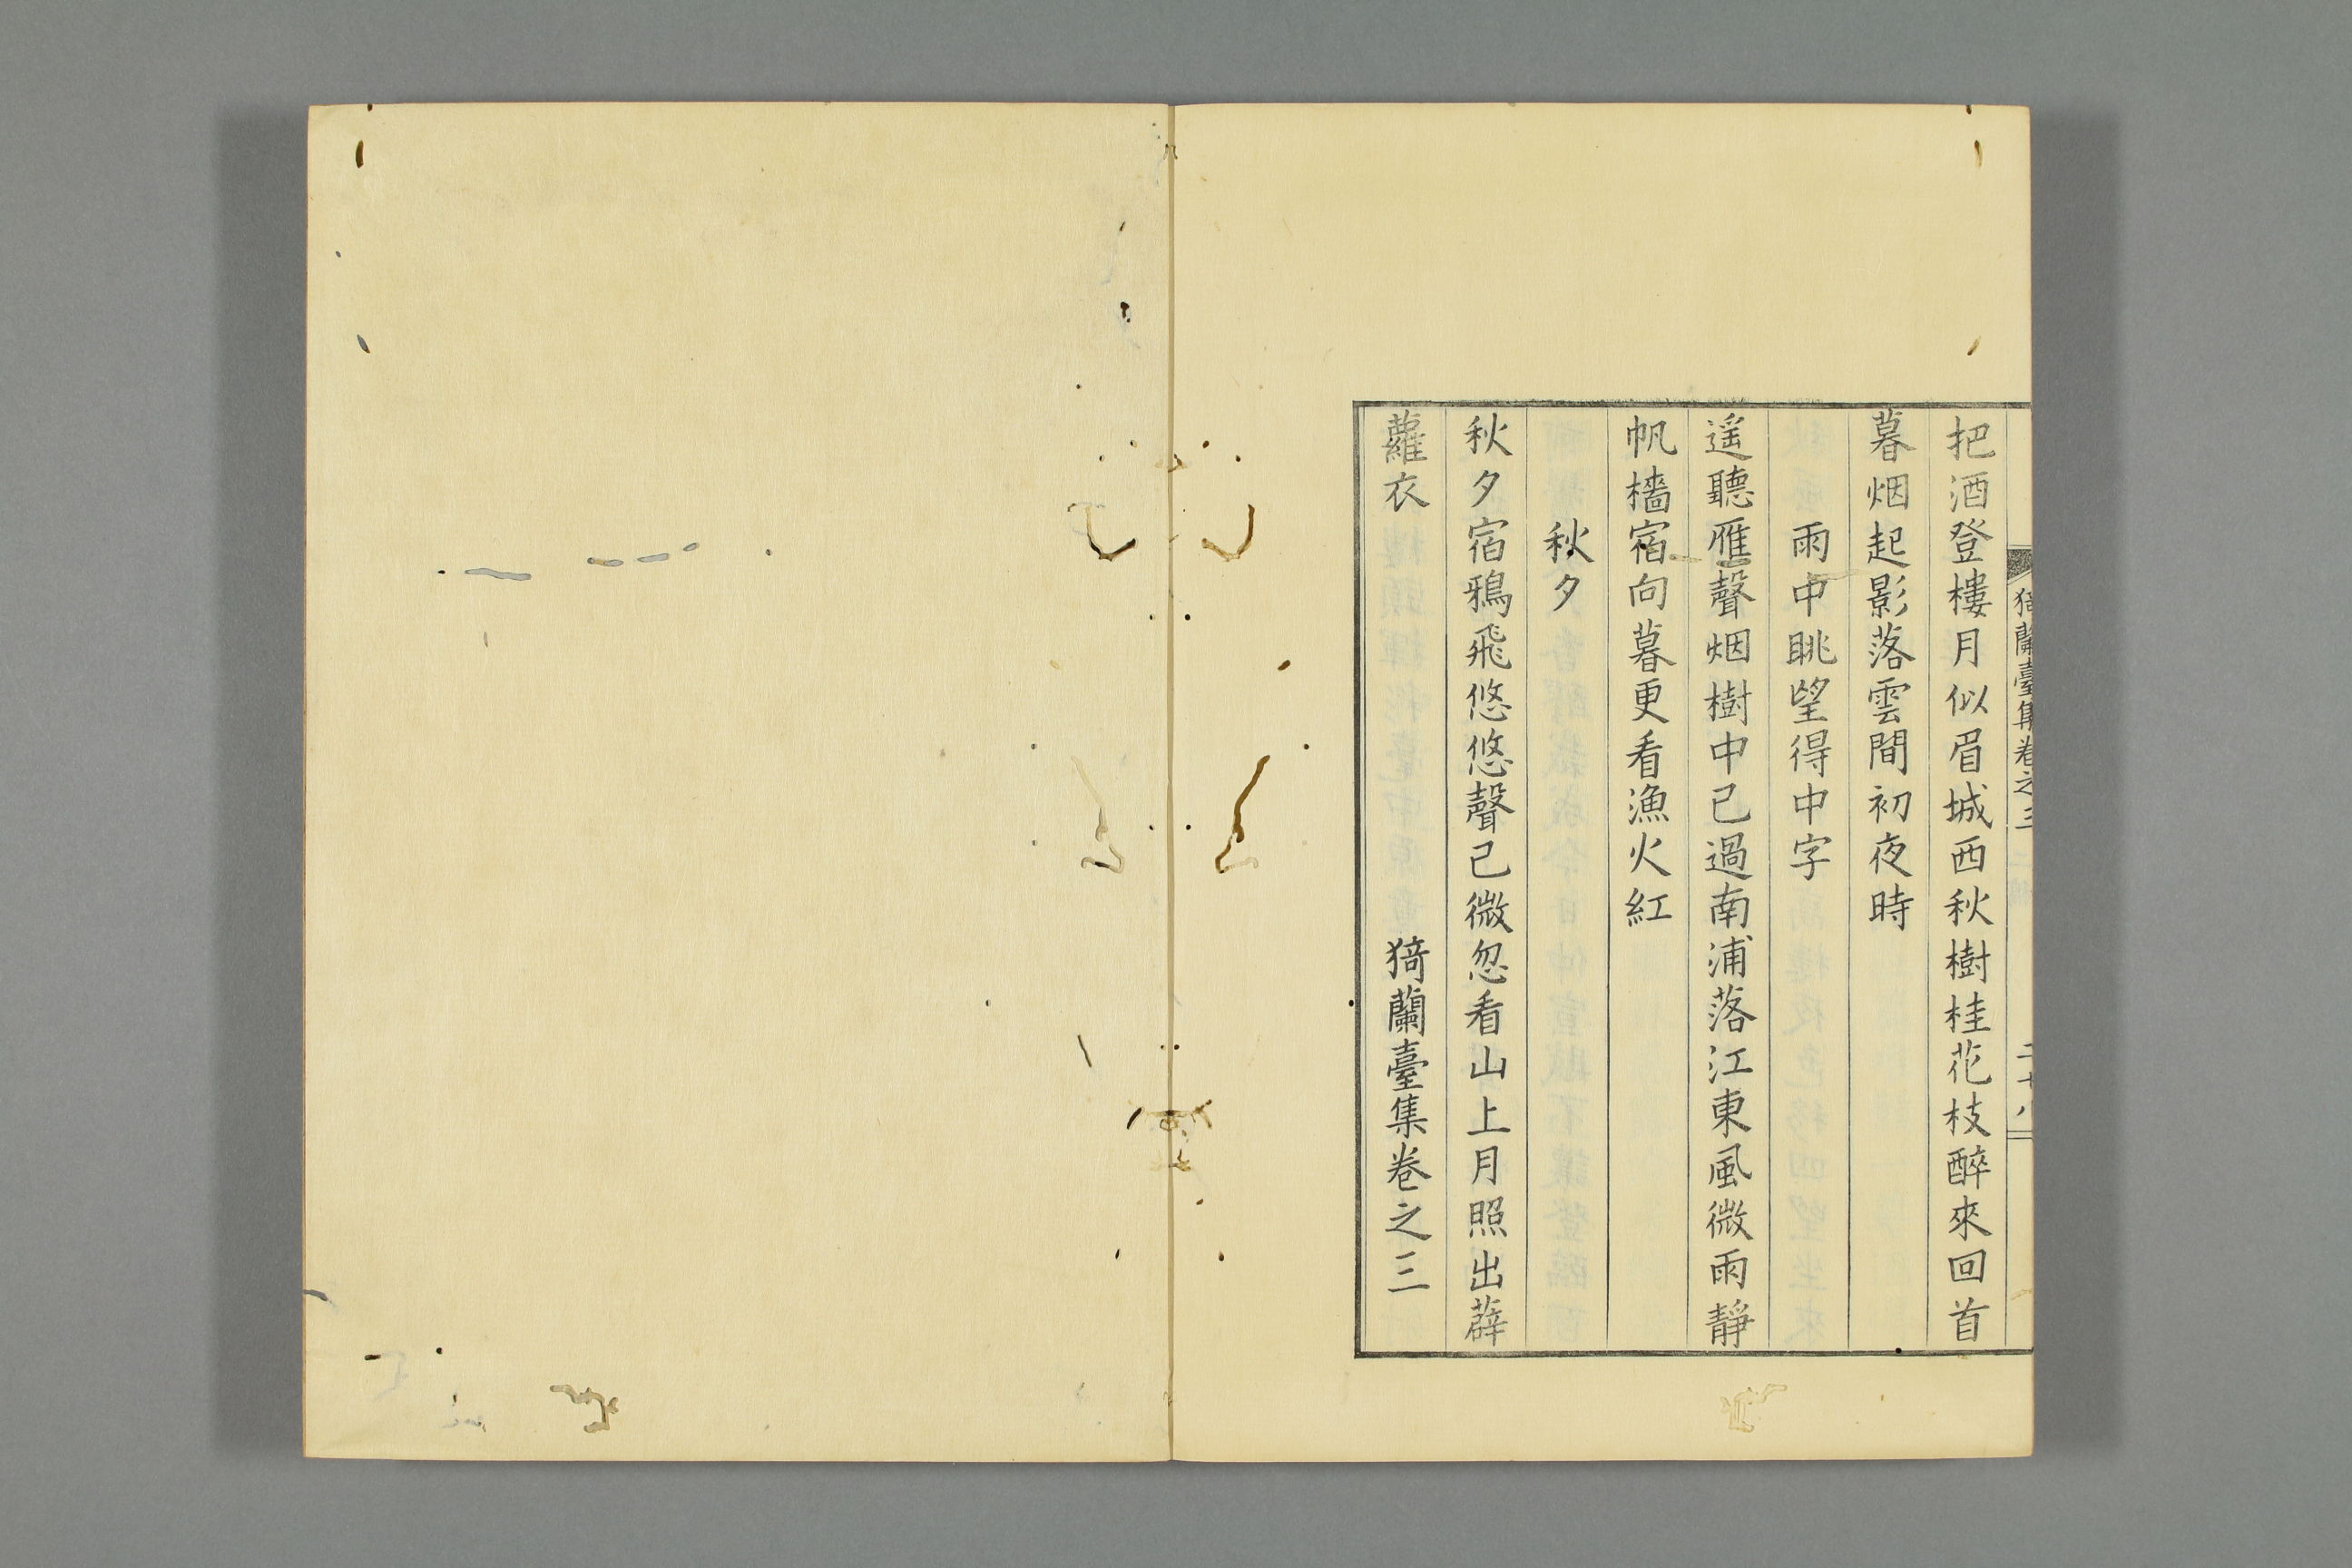 猗蘭臺集卷之三 二十八
把酒登樓月似眉城西秋樹桂花枝醉來回首
暮烟起影落雲間初夜時
雨中眺望得中字
遥聽雁聲烟樹中已過南浦落江東風微雨靜
帆檣宿向暮更看漁火紅
秋夕
秋夕宿鴉飛悠悠聲已微忽看山上月照出薜
蘿衣
猗蘭臺集卷之三